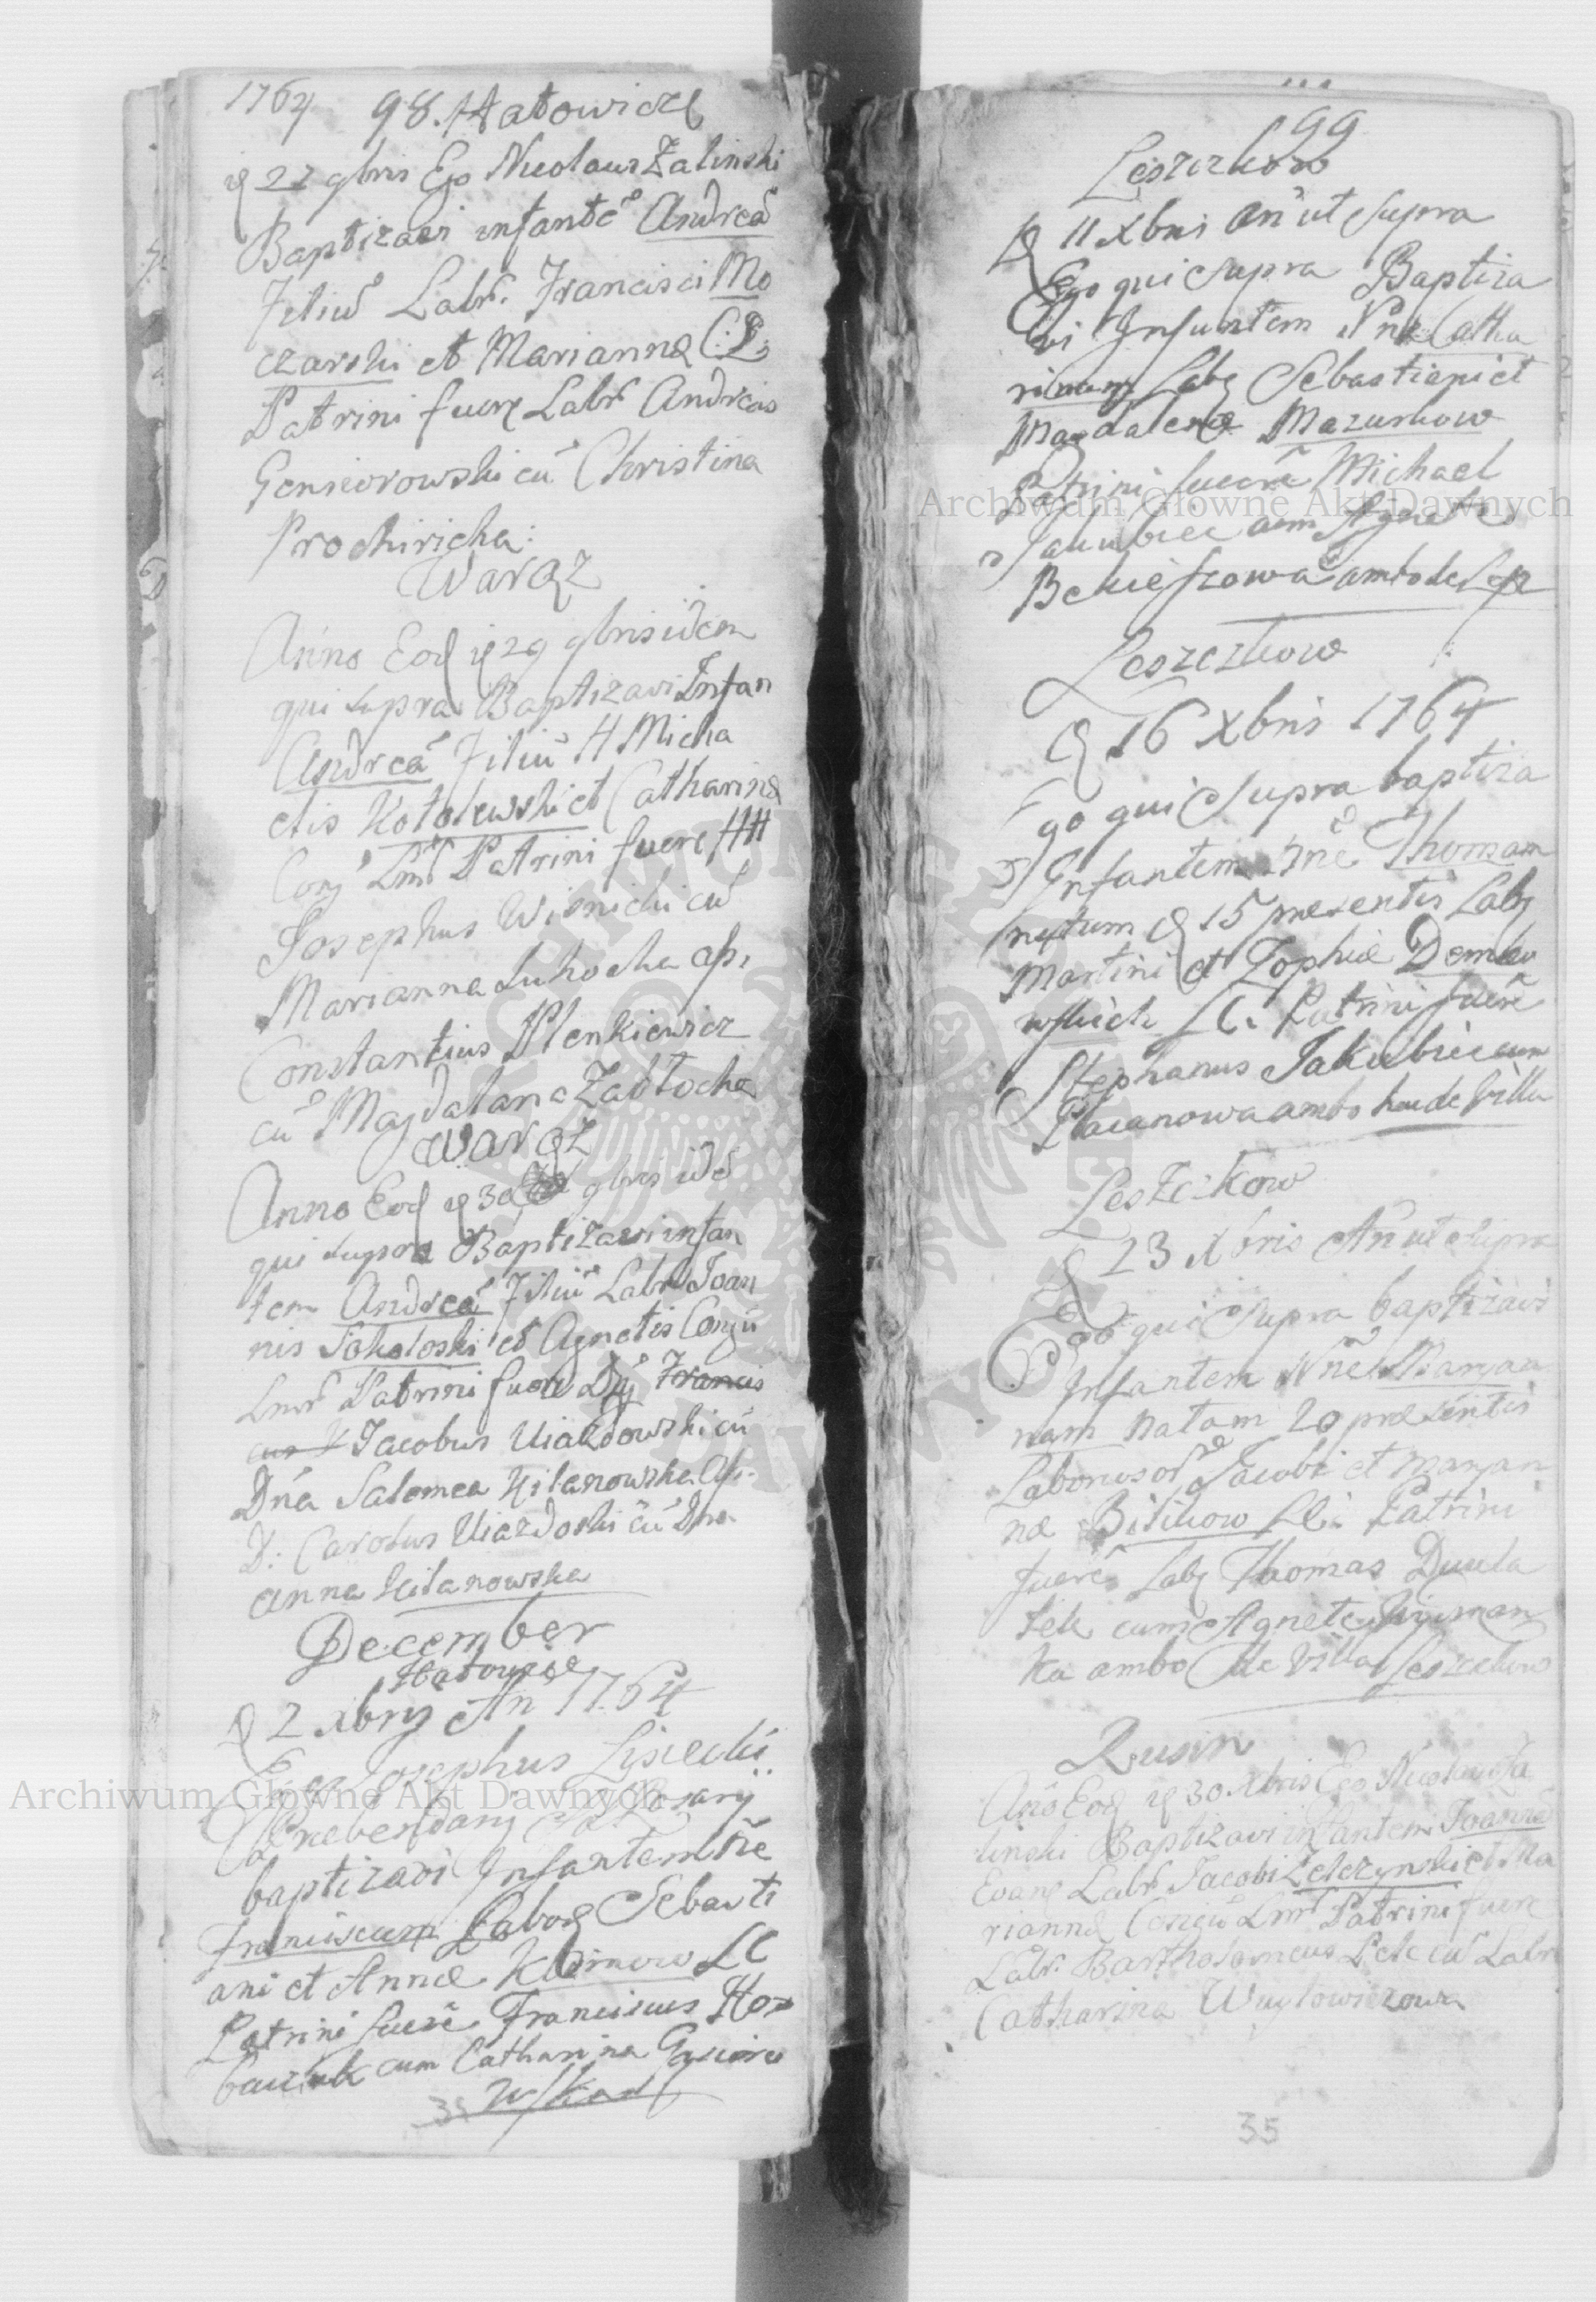 1764 98. Hatowicze
22 9bris Ego Nicolaus Zalinski
Baptizavi infantē Andreā
Filiū Labr. Francisci Mo
czarski et Marianna C: L:
Patrini fuere Labr Andreas
Gensiorowski cū Christina
Prochiricha:
Waręz
Anno Eod 29 9bris idem
qui supra Baptizavi Infan
Andreā Filiū H Micha
elis Kotolewski et Catharina
Conj Lmr Patrini fuere HH
Josephus Wisnicki cū
Marianna Suhocka ass.
Constantius Plenkiewicz
cū Magdalana Zabłocka
Waręz
Anno Eod 30 9bris idē
qui supra Baptizavi infan
tem Andreā Filiū Labr Joan
nis Sokoloski et Agnetis Conju
Lmr Patrini fuere Dnj Francis
Jacobus Uiazdowski cū
Dna Salomea Kilanowska ass.
D: Carolus Uiazdoski cū Dna
Anna Kilanowska
December
Hatowice
2 xbris An 1764
Ego Josephus Lisiecki
Praebendarj Rosarij
baptizavi Infantem Nñe
Franciscum Labor Sebasti
ani et Annæ Klimow LC
Patrini fuere Franciscus Hor
baczuk cum Catharina Gąsioro
wska
35
99
Leszczkow
11 Xbris An ut supra
Ego qui supra Baptiza
vi Infantem Nne Catha
rinam Lab Sebastiani et
Magdalenæ Mazurkow
Patrini fuere Michael
Jakubiec cum Agnete
Bekieszowa ambo de Lesz
Leszczkow
16 Xbris 1764
Ego qui supra baptiza
Infantem Nne Thomam
natum 15 præsentis Lab
Martini et Zophiæ Dembo
wskich LC. Patrini fuere
Stephanus Jakubiec cum
Pacanowa ambo hac de Villa
Leszczkow
23 Xbris An ut supra
Ego qui supra baptizavi
Infantem Nne Maryan
nam natam 20 præsentis
Laborios Jacobi et Maryan
næ Bilikow LC: Patrini
fuere Lab Thomas Duda
lek cum Agnete Szyman
ka ambo de Villa Leszczkow
Rusin
Ano Eod 30 Xbris Ego Nicolaus Za
linski Baptizavi infantem Joannē
Evang Labr Jacobi Zelczynski et Ma
rianna Conju Lmr Patrini fuere
Labr. Bartholomeus Pele cū Labr
Catharina Wuytowiczowa
35
Archiwum Główne Akt Dawnych
Archiwum Główne Akt Dawnych